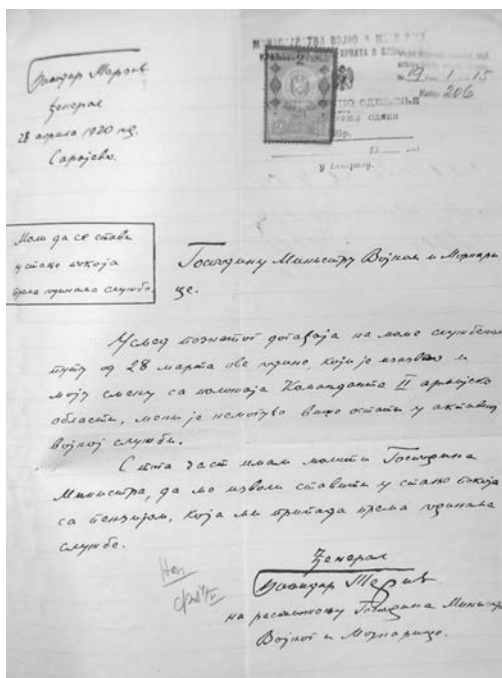 Божидар Терзић
ђенерал
28 априла 1920 год.
Сарајево.
ХРВАТА И
19 1 15
206
ОДЕЉЕЊЕ
Бр.
у Београду.
Моли да се стави
у стање покоја
према годинама службе.
Господину Министру Војном и Морнари
це.
Услед познатог догађаја на моме службеном
путу од 28 марта ове године, који је изазвао и
моју смену са положаја Команданта II армијске
области, мени је немогуће више остати у активној
војној служби.
С тога част имам молити Господина
Министра, да ме изволи ставити у стање покоја
са пензијом, која ми припада према годинама
службе.
Ђенерал
Божидар Терзић
на расположењу Господина Министра
Војног и Морнарице.